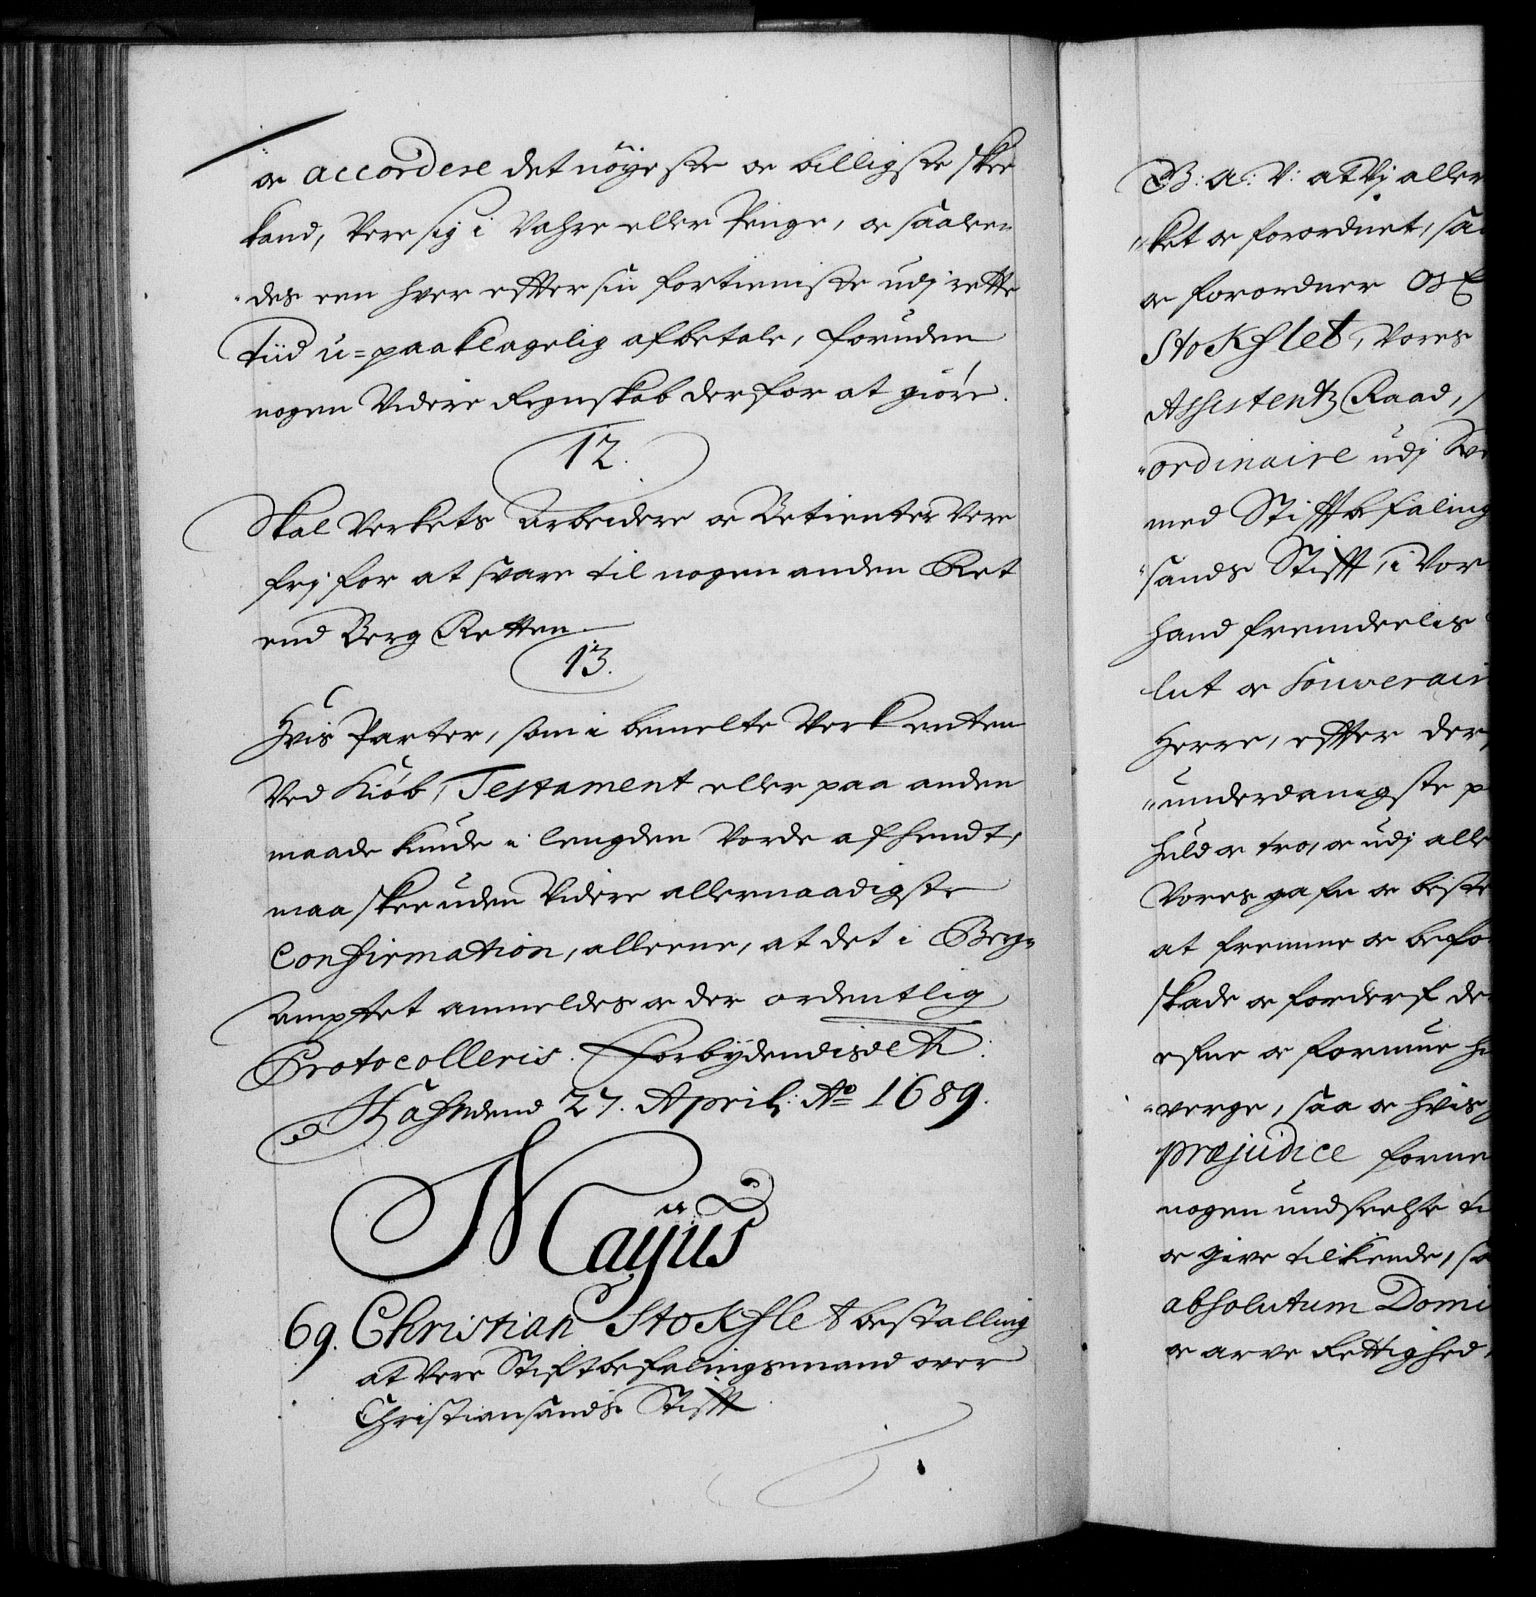 oc accordere det nöyeste oc billigste skee
kand, Vere sig i Vahre eller Penge, oc saaleen
des een hver effter sin fortieniste udj rette
Tiid u=paaklagelig afbetale, foruden
nogen Videre Regnskab derfor at giöre.
12.
Skal Verkets Arbeidere oc Betienter Vere
frj for at svare til nogen anden Ret
end Berg Retten.
13.
Hvis Parter, som i bemelte Verk enten
Ved Kiöb, Testament eller paa anden
maade kunde i lengden Vorde afhendt,
maa skee uden Videre allernaadigste
Confirmation, alleene, at det i Berg=
Amptet anmeldes oc der ordentlig
Protocolleris. Forbydendis etc:
Hafn dend 27. April: Ao 1689.
Mayus
69. Christian Stokflet bestalling
at Vere Stiftbefalingsmand over
Christiansands Stifft
B: A: V: at Vj aller
"ket oc forordnet, saa
oc forordner Os E
Stokflet, Vores
Assistentz Raad,
"ordinaire udj
med Stifftbefaling
"sands Stifft, i Vor
hand fremdeelis
lut oc Souverain
Herre, effter der
"underdanigste p
huld oc tro, oc udj alle
Vores gafn oc beste
at fremme oc befo
skade oc forderf de
efne oc formue
"verge, saa oc hvis
præjudice forne
nogen undseelse ti
oc give tilkiende, sa
absolutum Domi
oc arve Rettighed,